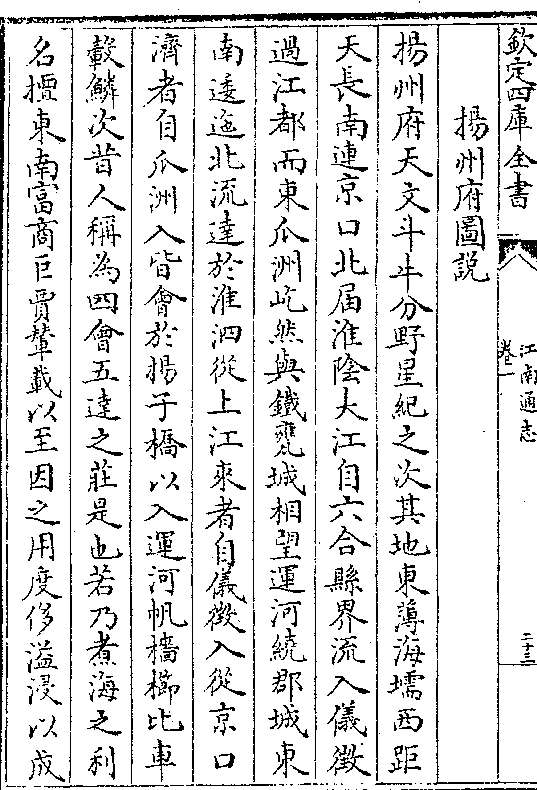 欽定四庫全書
江南通志
卷一
二十三
揚州府圖説
揚州府天文斗牛分野星紀之次其地東薄海壖西距
天長南連京口北届淮陰大江自六合縣界流入儀徴
過江都而東瓜洲屹然與鐵甕城相望運河繞郡城東
南逶迤北流達於淮泗從上江來者自儀徴入從京口
濟者自瓜洲入皆會於揚子橋以入運河帆檣櫛比車
轂鱗次昔人稱為四會五達之莊是也若乃煮海之利
名擅東南富商巨賈輦載以至因之用度侈溢浸以成